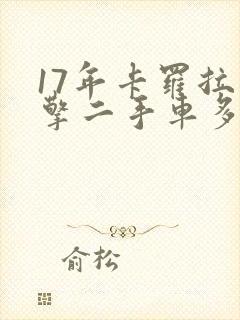 17年卡羅拉
擎二手車多
俞松